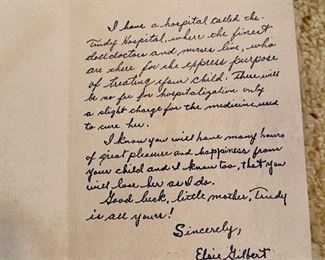 I have a hospital called the
Trudy Hospital, where the finest
doll doctors and nurses live, who
are there for the express purpose
of treating your child. There will
be no fee for hospitalization only
a slight charge for the medicine used
to cure her.
I know you will have many hours
of great pleasure and happiness from
your child and I know too, that you
will love her as I do.
Good luck, little mother, Trudy
is all yours!
Sincerely,
Elsie Gilbert